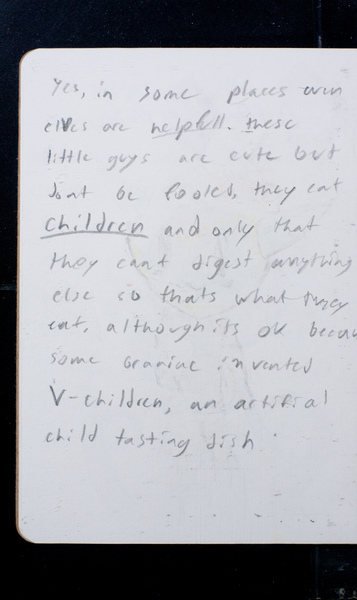 Yes, in some places even
elves are helpfull. these
little guys are cute but
dont be fooled, they eat
children and only that
they cant digest anything
else so thats what they
eat, although its ok becau
some braniac invented
V-children, an artifial
child tasting dish.